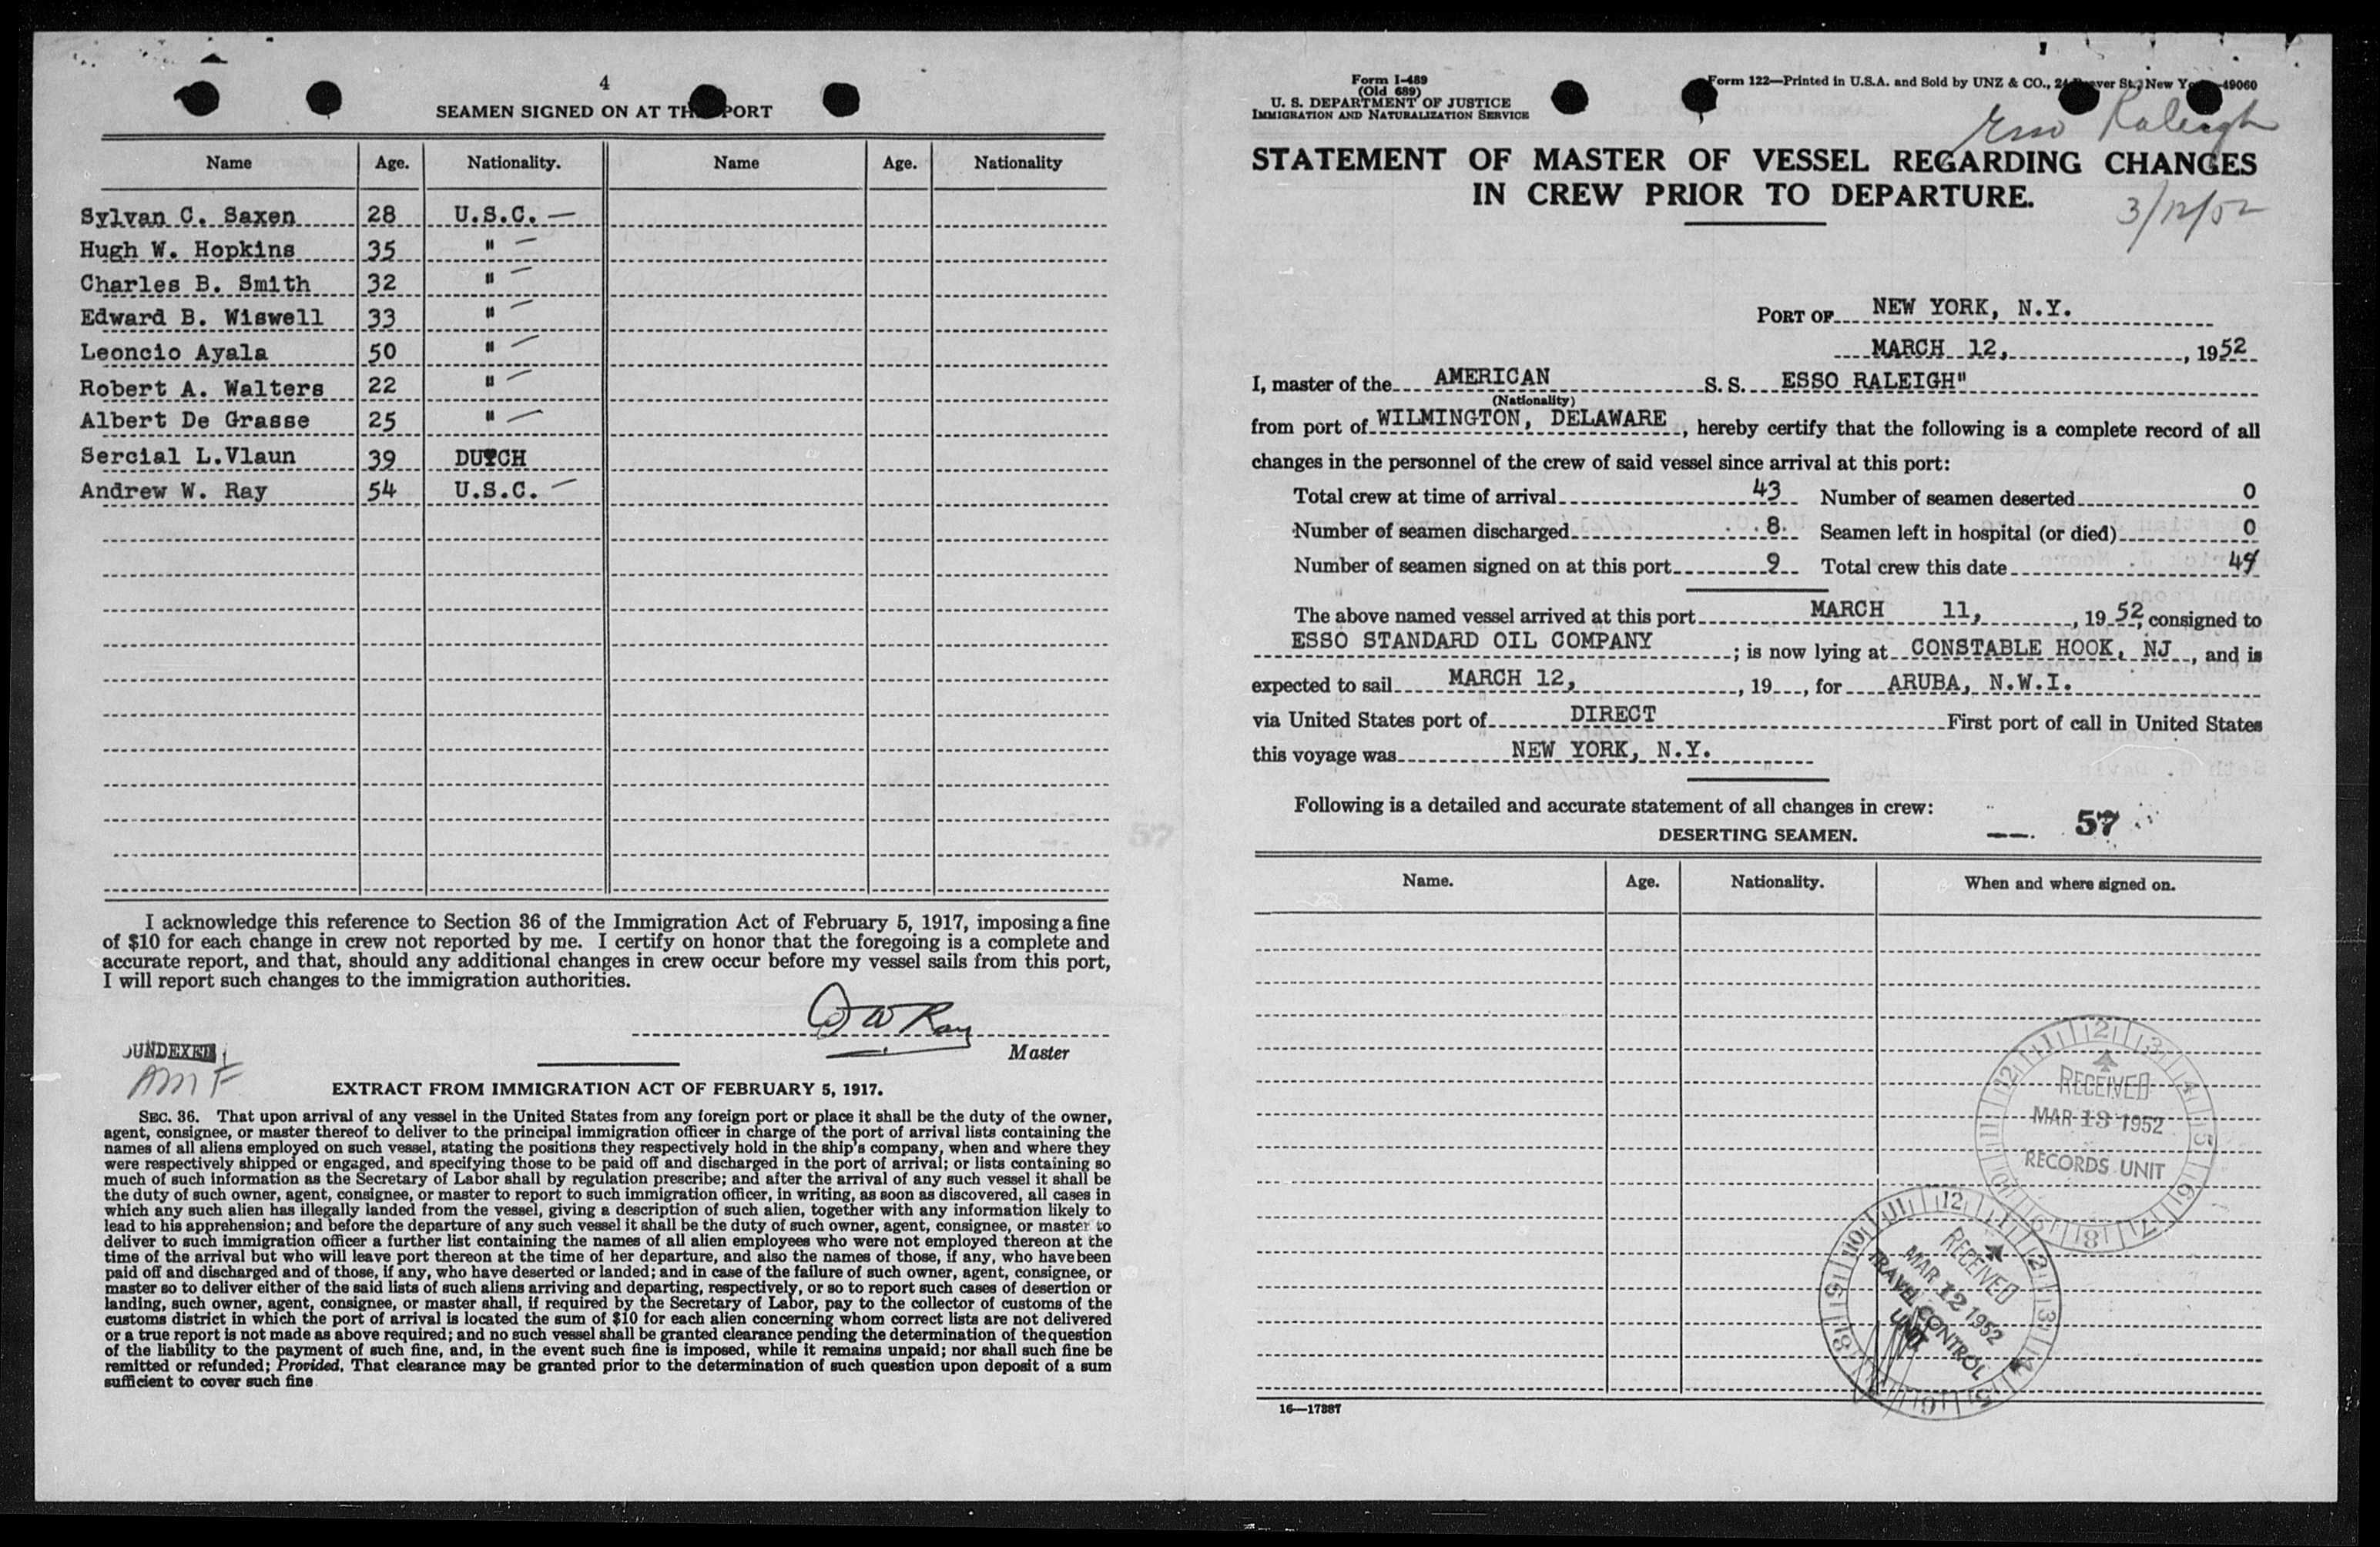 4
SEAMEN SIGNED ON AT PORT
Name Age. Nationality. Name Age. Nationality
Sylvan C. Saxen 28 U.S.C. —
Hugh W. Hopkins 35 " —
Charles B. Smith 32 " —
Edward B. Wiswell 33 " —
Leoncio Ayala 50 " —
Robert A. Walters 22 " —
Albert De Grasse 25 " —
Sercial L.Vlaun 39 DUTCH
Andrew W. Ray 54 U.S.C. —
I acknowledge this reference to Section 36 of the Immigration Act of February 5, 1917, imposing a fine
of $10 for each change in crew not reported by me. I certify on honor that the foregoing is a complete and
accurate report, and that, should any additional changes in crew occur before my vessel sails from this port,
I will report such changes to the immigration authorities.
A W Ray
Master
AMF
EXTRACT FROM IMMIGRATION ACT OF FEBRUARY 5, 1917.
SEC. 36. That upon arrival of any vessel in the United States from any foreign port or place it shall be the duty of the owner,
agent, consignee, or master thereof to deliver to the principal immigration officer in charge of the port of arrival lists containing the
names of all aliens employed on such vessel, stating the positions they respectively hold in the ship's company, when and where they
were respectively shipped or engaged, and specifying those to be paid off and discharged in the port of arrival; or lists containing so
much of such information as the Secretary of Labor shall by regulation prescribe; and after the arrival of any such vessel it shall be
the duty of such owner, agent, consignee, or master to report to such immigration officer, in writing, as soon as discovered, all cases in
which any such alien has illegally landed from the vessel, giving a description of such alien, together with any information likely to
lead to his apprehension; and before the departure of any such vessel it shall be the duty of such owner, agent, consignee, or master to
deliver to such immigration officer a further list containing the names of all alien employees who were not employed thereon at the
time of the arrival but who will leave port thereon at the time of her departure, and also the names of those, if any, who have been
paid off and discharged and of those, if any, who have deserted or landed; and in case of the failure of such owner, agent, consignee, or
master so to deliver either of the said lists of such aliens arriving and departing, respectively, or so to report such cases of desertion or
landing, such owner, agent, consignee, or master shall, if required by the Secretary of Labor, pay to the collector of customs of the
customs district in which the port of arrival is located the sum of $10 for each alien concerning whom correct lists are not delivered
or a true report is not made as above required; and no such vessel shall be granted clearance pending the determination of the question
of the liability to the payment of such fine, and, in the event such fine is imposed, while it remains unpaid; nor shall such fine be
remitted or refunded; Provided, That clearance may be granted prior to the determination of such question upon deposit of a sum
sufficient to cover such fine
Form I-489
(Old 689)
U. S. DEPARTMENT OF JUSTICE
IMMIGRATION AND NATURALIZATION SERVICE
Form 122—Printed in U.S.A. and Sold by UNZ & CO., St., New 49060
Esso Raleigh
STATEMENT OF MASTER OF VESSEL REGARDING CHANGES
IN CREW PRIOR TO DEPARTURE.
3/12/52
PORT OF NEW YORK, N.Y.
MARCH 12, , 1952
I, master of the AMERICAN S. S. ESSO RALEIGH"
(Nationality)
from port of WILMINGTON, DELAWARE , hereby certify that the following is a complete record of all
changes in the personnel of the crew of said vessel since arrival at this port:
Total crew at time of arrival 43 Number of seamen deserted 0
Number of seamen discharged 8. Seamen left in hospital (or died) 0
Number of seamen signed on at this port 9 Total crew this date
The above named vessel arrived at this port MARCH 11, , 1952, consigned to
ESSO STANDARD OIL COMPANY ; is now lying at CONSTABLE HOOK, NJ , and is
expected to sail MARCH 12, , 19 , for ARUBA, N.W.I.
via United States port of DIRECT First port of call in United States
this voyage was NEW YORK, N.Y.
Following is a detailed and accurate statement of all changes in crew:
DESERTING SEAMEN.
57
Name. Age. Nationality. When and where signed on.
RECEIVED
MAR 13 1952
RECORDS UNIT
RECEIVED
MAR 12 1952
TRAVEL CONTROL
UNIT
16—17387